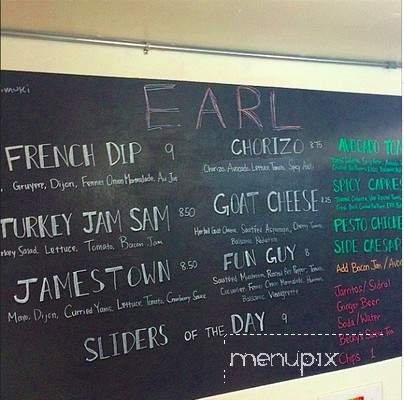 EARL
FRENCH DIP 9
Gruyerr, Dijon, Fennel Onion Marmalade, Au Jus
TURKEY JAM SAM 8.50
Salad, Lettuce, Tomato, Bacon Jam
JAMESTOWN 8.50
Mayo, Dijon, Curried Yams, Lettuce, Tomato, Cranberry Sauce
CHORIZO 8.75
Chorizo, Avocado, Lettuce, Tomato, Spicy Aioli
GOAT CHEESE 8.25
Herbed Goat Cheese, Sautéed Asparagus, Cherry Tomato,
Balsamic Reduction
FUN GUY 8
Sautéed Mushroom, Roasted Bell Pepper, Tomato,
Cucumber, Fennel Onion Marmalade, Hummus,
Balsamic Vinaigrette
SLIDERS OF THE DAY 9
AVOCADO
SPICY CAPRES
PESTO CHICKE
SIDE CAESAR
Add Bacon Jam / Avoc
Jarritos / Sidral
Ginger Beer
Soda / Water
Becky's Sun Tea
Chips 1
menupix